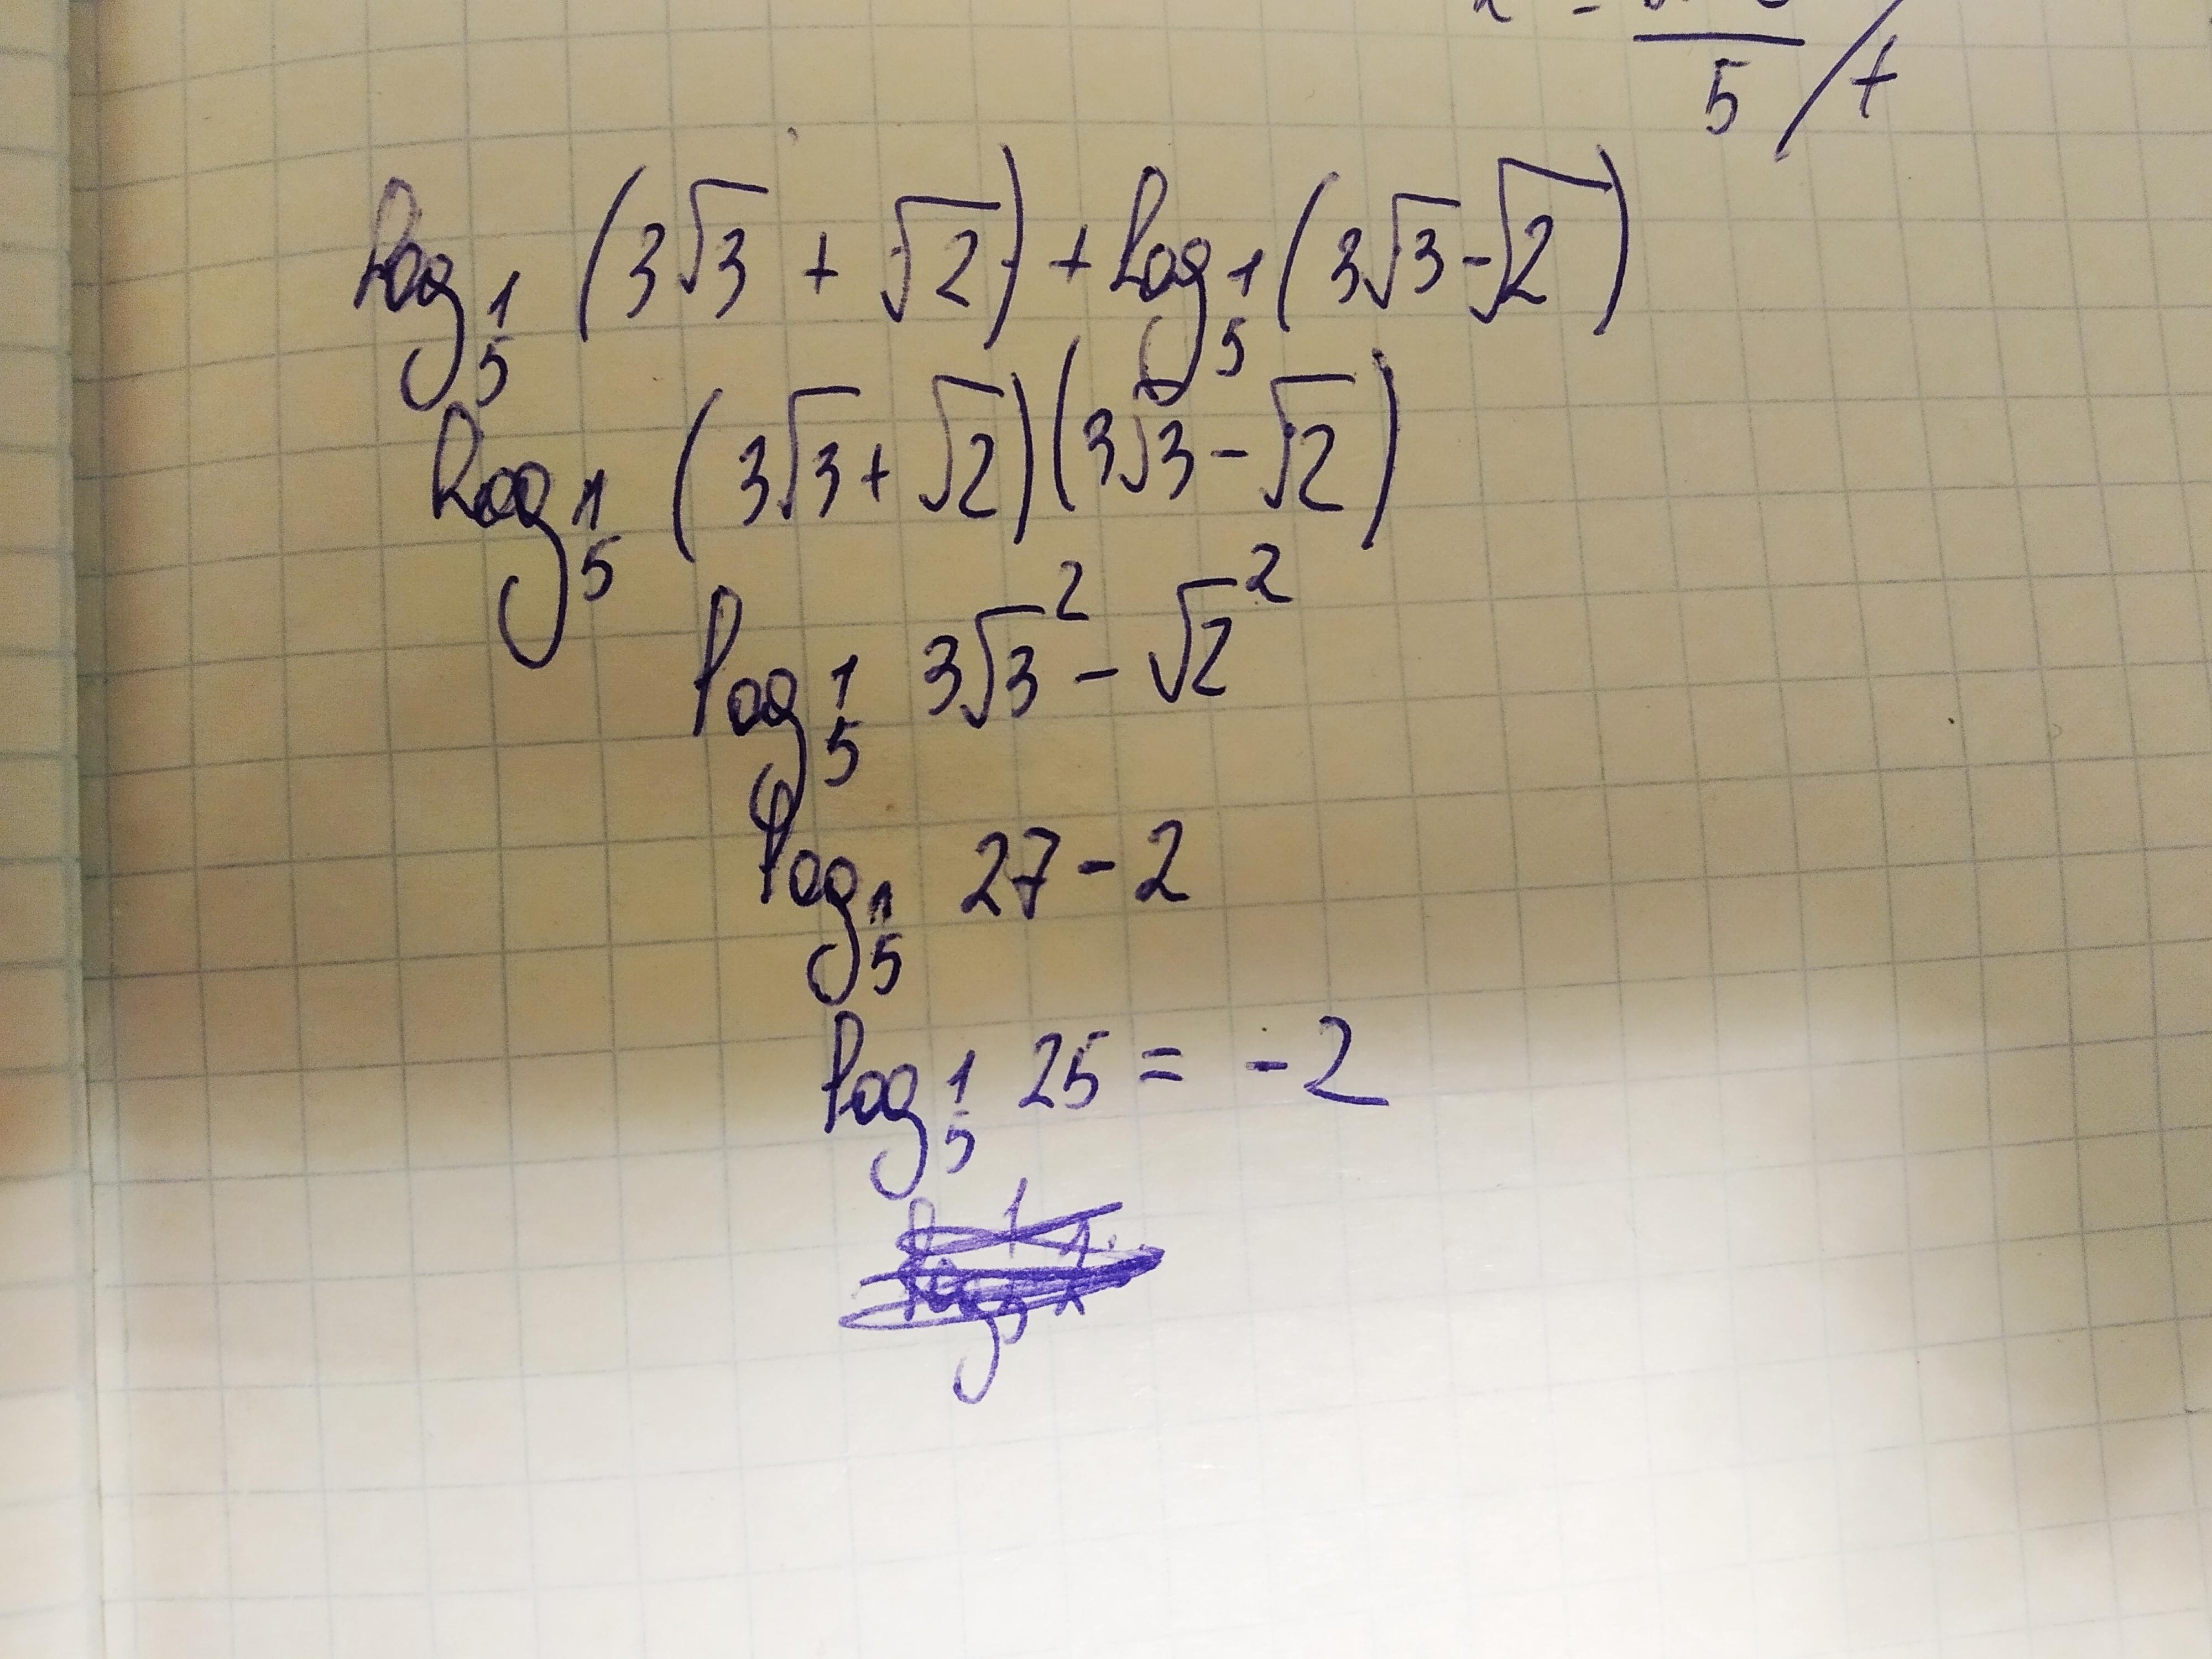 5 / t
log 1/5 (3√3 + √2) + log 1/5 (3√3 - √2)
log 1/5 (3√3 + √2)(3√3 - √2)
log 1/5 3√3² - √2²
log 1/5 27 - 2
log 1/5 25 = -2